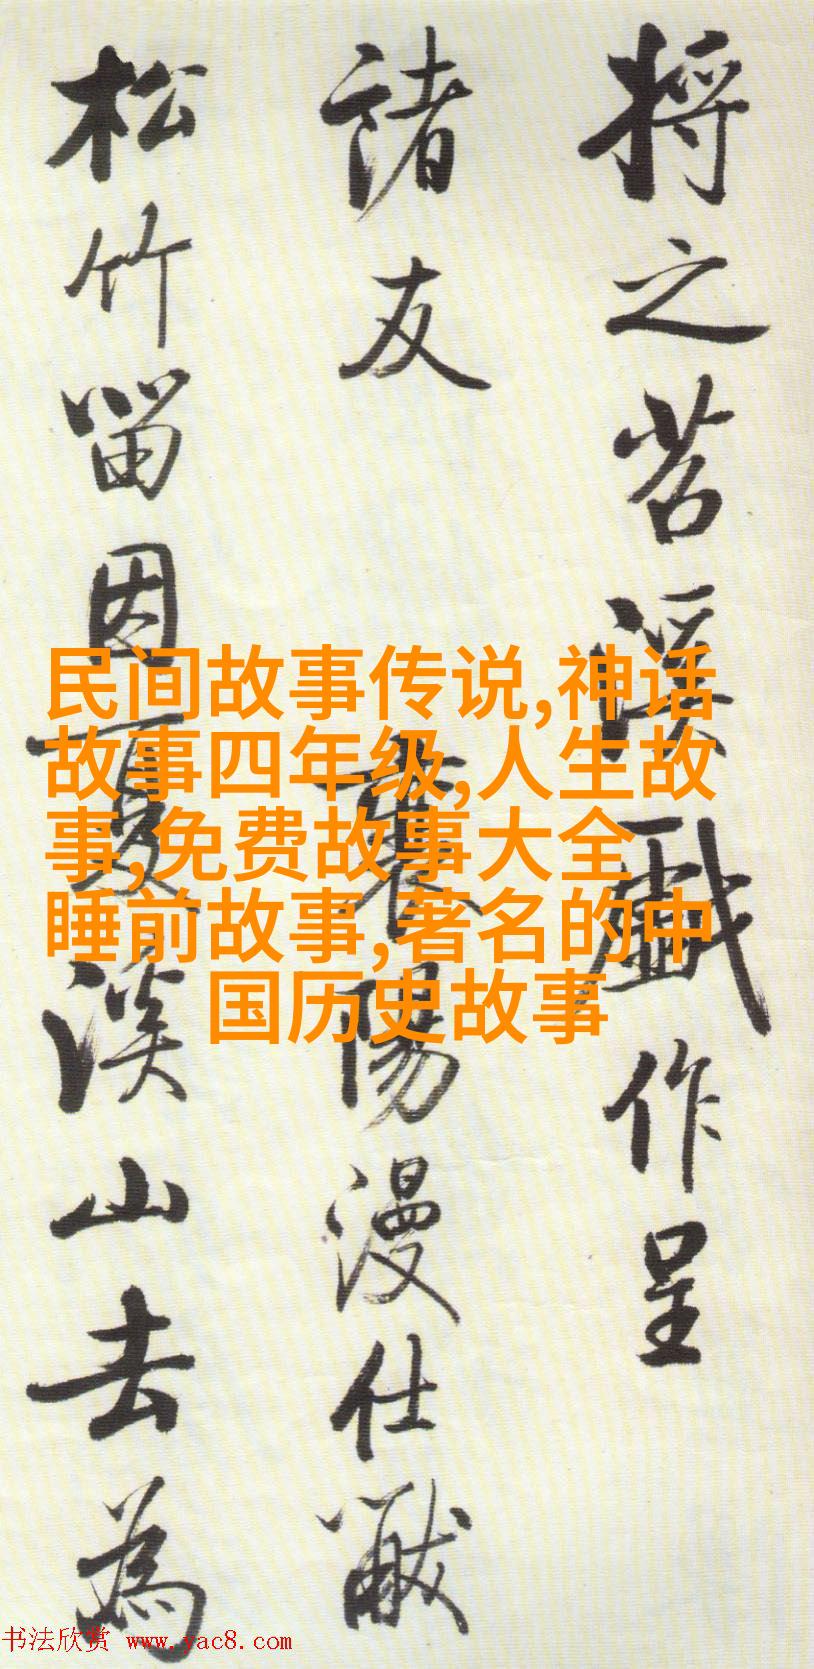 将之苕溪戲作呈
諸友
襄陽漫仕黻
松竹留因夏溪山去為
民间故事传说,神话
故事四年级,人生故
事,免费故事大全
睡前故事,著名的中
国历史故事
书法欣赏 www.yac8.com